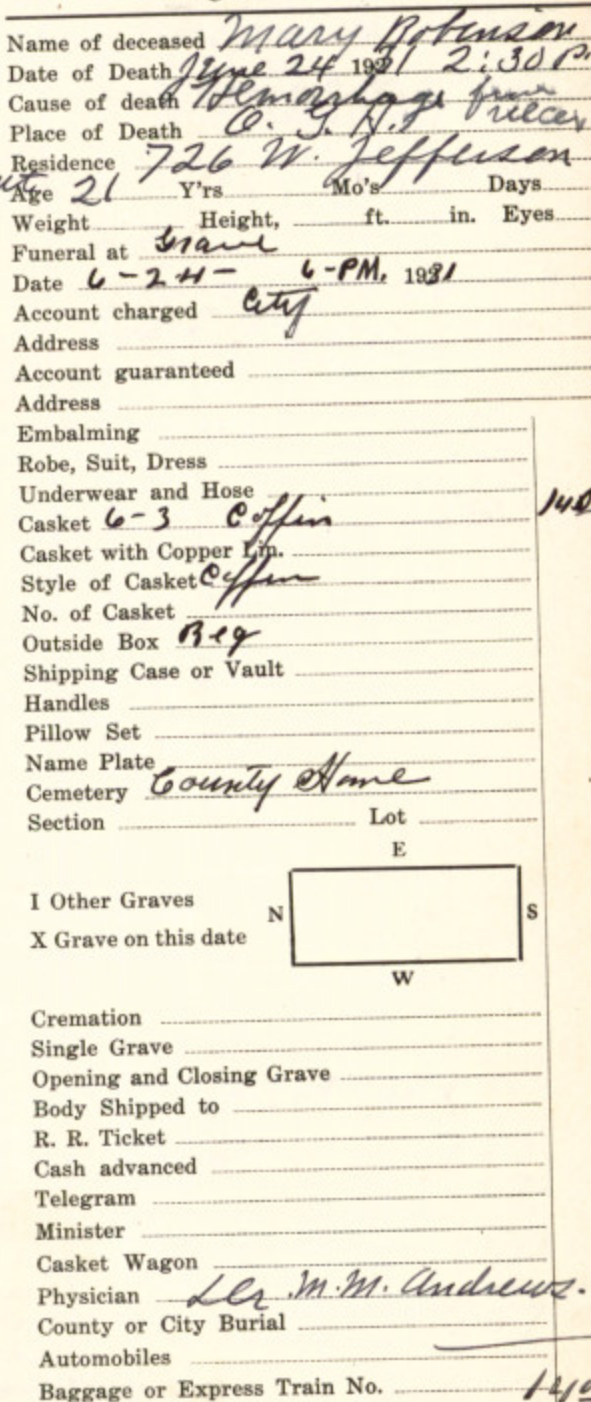 Name of deceased Mary Robinson
Date of Death June 24 1931 2:30 P.
Cause of death Hemorrhage from Ulcer
Place of Death O. G. H.
Residence 726 W. Jefferson
Age 21 Y'rs Mo's Days
Weight Height, ft. in. Eyes
Funeral at Grave
Date 6-24- 6-PM. 1931
Account charged City
Address
Account guaranteed
Address
Embalming
Robe, Suit, Dress
Underwear and Hose
Casket 6-3 Coffin
Casket with Copper Lin.
Style of Casket Coffin
No. of Casket
Outside Box Reg
Shipping Case or Vault
Handles
Pillow Set
Name Plate
Cemetery County Home
Section Lot
E
I Other Graves
N S
X Grave on this date
W
Cremation
Single Grave
Opening and Closing Grave
Body Shipped to
R. R. Ticket
Cash advanced
Telegram
Minister
Casket Wagon
Physician Dr. M. M. Andrews.
County or City Burial
Automobiles
Baggage or Express Train No.